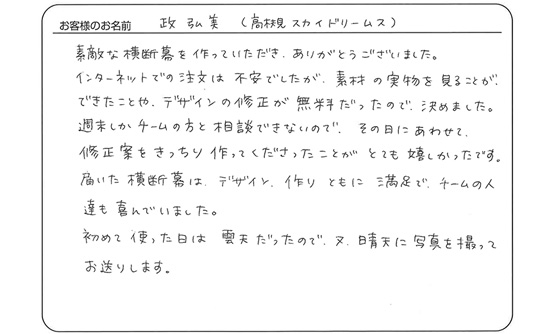 お客様のお名前 政 弘美 (高槻スカイドリームス)
素敵な横断幕を作っていただき、ありがとうございました。
インターネットでの注文は不安でしたが、素材の実物を見ることが、
できたことや、デザインの修正が無料だったので、決めました。
週末しかチームの方と相談できないので、その日にあわせて、
修正案をきっちり作ってくださったことがとても嬉しかったです。
届いた横断幕は、デザイン、作りともに満足で、チームの人
達も喜んでいました。
初めて使った日は曇天だったので、又、晴天に写真を撮って
お送りします。